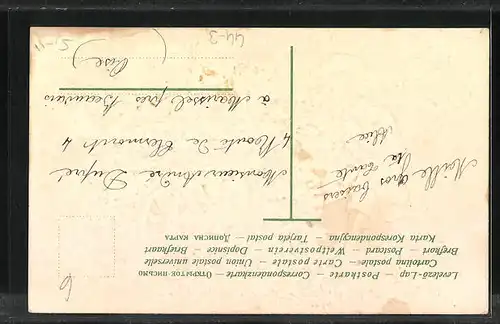 Levelező-Lap — Postkarte — Correspondenzkarte — Открытое письмо
Cartolina postale — Carte postale — Union postale universelle
Brefkort — Postcard — Weltpostverein — Dopisnice — Briefkaart
Karta Korespondencyjna — Tarjeta postal — Дописна карта
Mille Gros baisers
Ta tante
Alice
Monsieur André Dupré
4 Route de Clermont 4
à Marissel près Beauvais
(Oise)
6
44-3